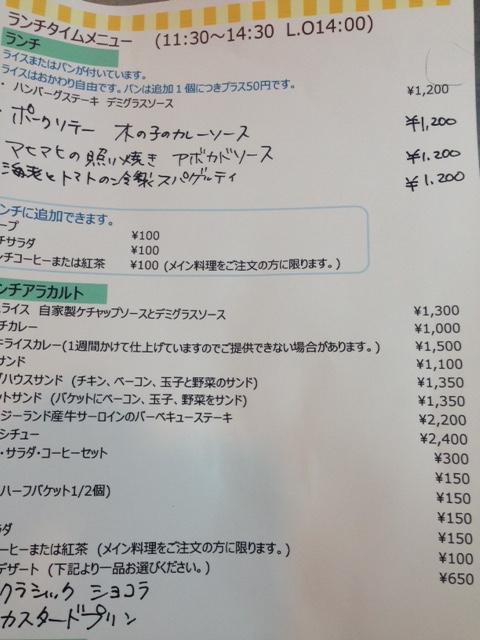 ランチタイムメニュー (11:30～14:30 L.O14:00)
ランチ
ライスまたはパンが付いています。
ライスはおかわり自由です。パンは追加1個につきプラス50円です。
・ハンバーグステーキ デミグラスソース ¥1,200
・ポークソテー 木の子のカレーソース ¥1,200
マヒマヒの照り焼き アボカドソース ¥1.200
海老とトマトの冷製スパゲルティ ¥1.200
ンチに追加できます。
ープ ¥100
チサラダ ¥100
ンチコーヒーまたは紅茶 ¥100 (メイン料理をご注文の方に限ります。)
ンチアラカルト
ムライス 自家製ケチャップソースとデミグラスソース ¥1,300
チカレー ¥1,000
ライスカレー(1週間かけて仕上げていますのでご提供できない場合があります。) ¥1,500
サンド ¥1,100
ブハウスサンド (チキン、ベーコン、玉子と野菜のサンド) ¥1,350
ットサンド (バケットにベーコン、玉子、野菜をサンド) ¥1,350
ジーランド産牛サーロインのバーベキューステーキ ¥2,200
シチュー ¥2,400
・サラダ・コーヒーセット ¥300
¥150
ハーフバケット1/2個) ¥150
¥150
ラダ ¥150
ーヒーまたは紅茶 (メイン料理をご注文の方に限ります。) ¥100
デザート (下記より一品お選びください。) ¥650
クラシック ショコラ
カスタードプリン